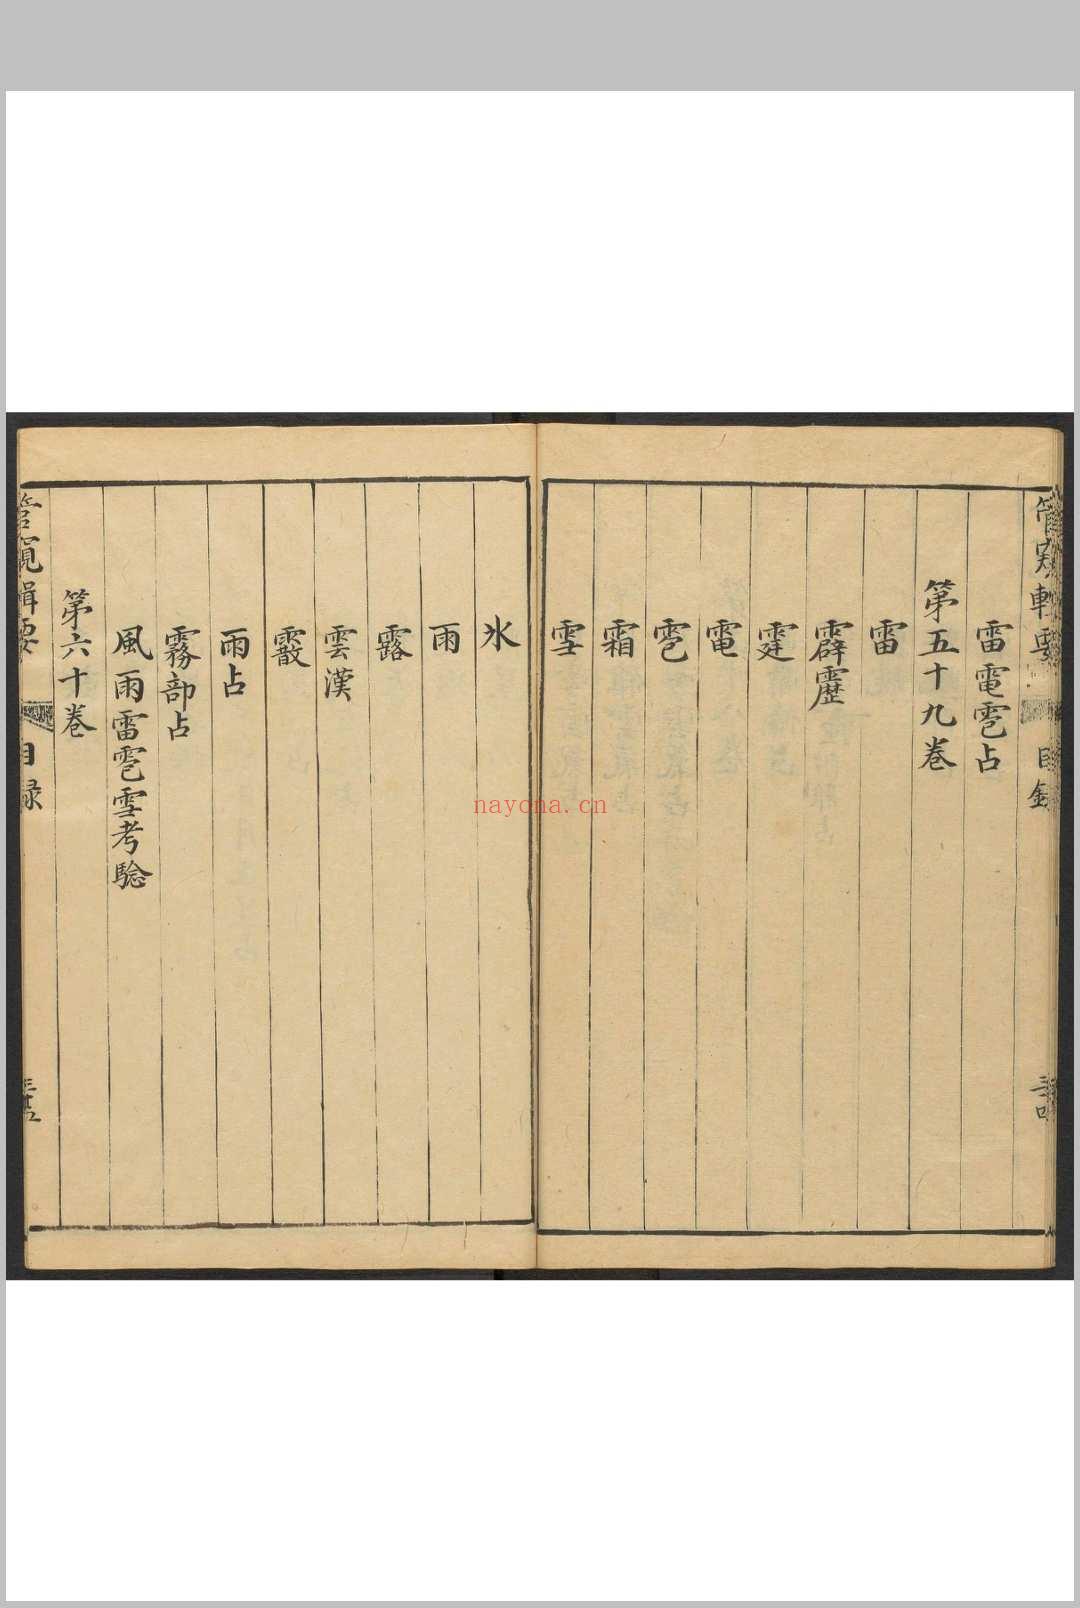 管窺輯要
目錄
雷電雹占
第五十九卷
雷
霹靂
霆
電
雹
霜
雪
氷
雨
露
雲漢
霰
雨占
霧部占
風雨雷雹雪考驗
第六十卷
管窺輯要
目録
nayona.cn